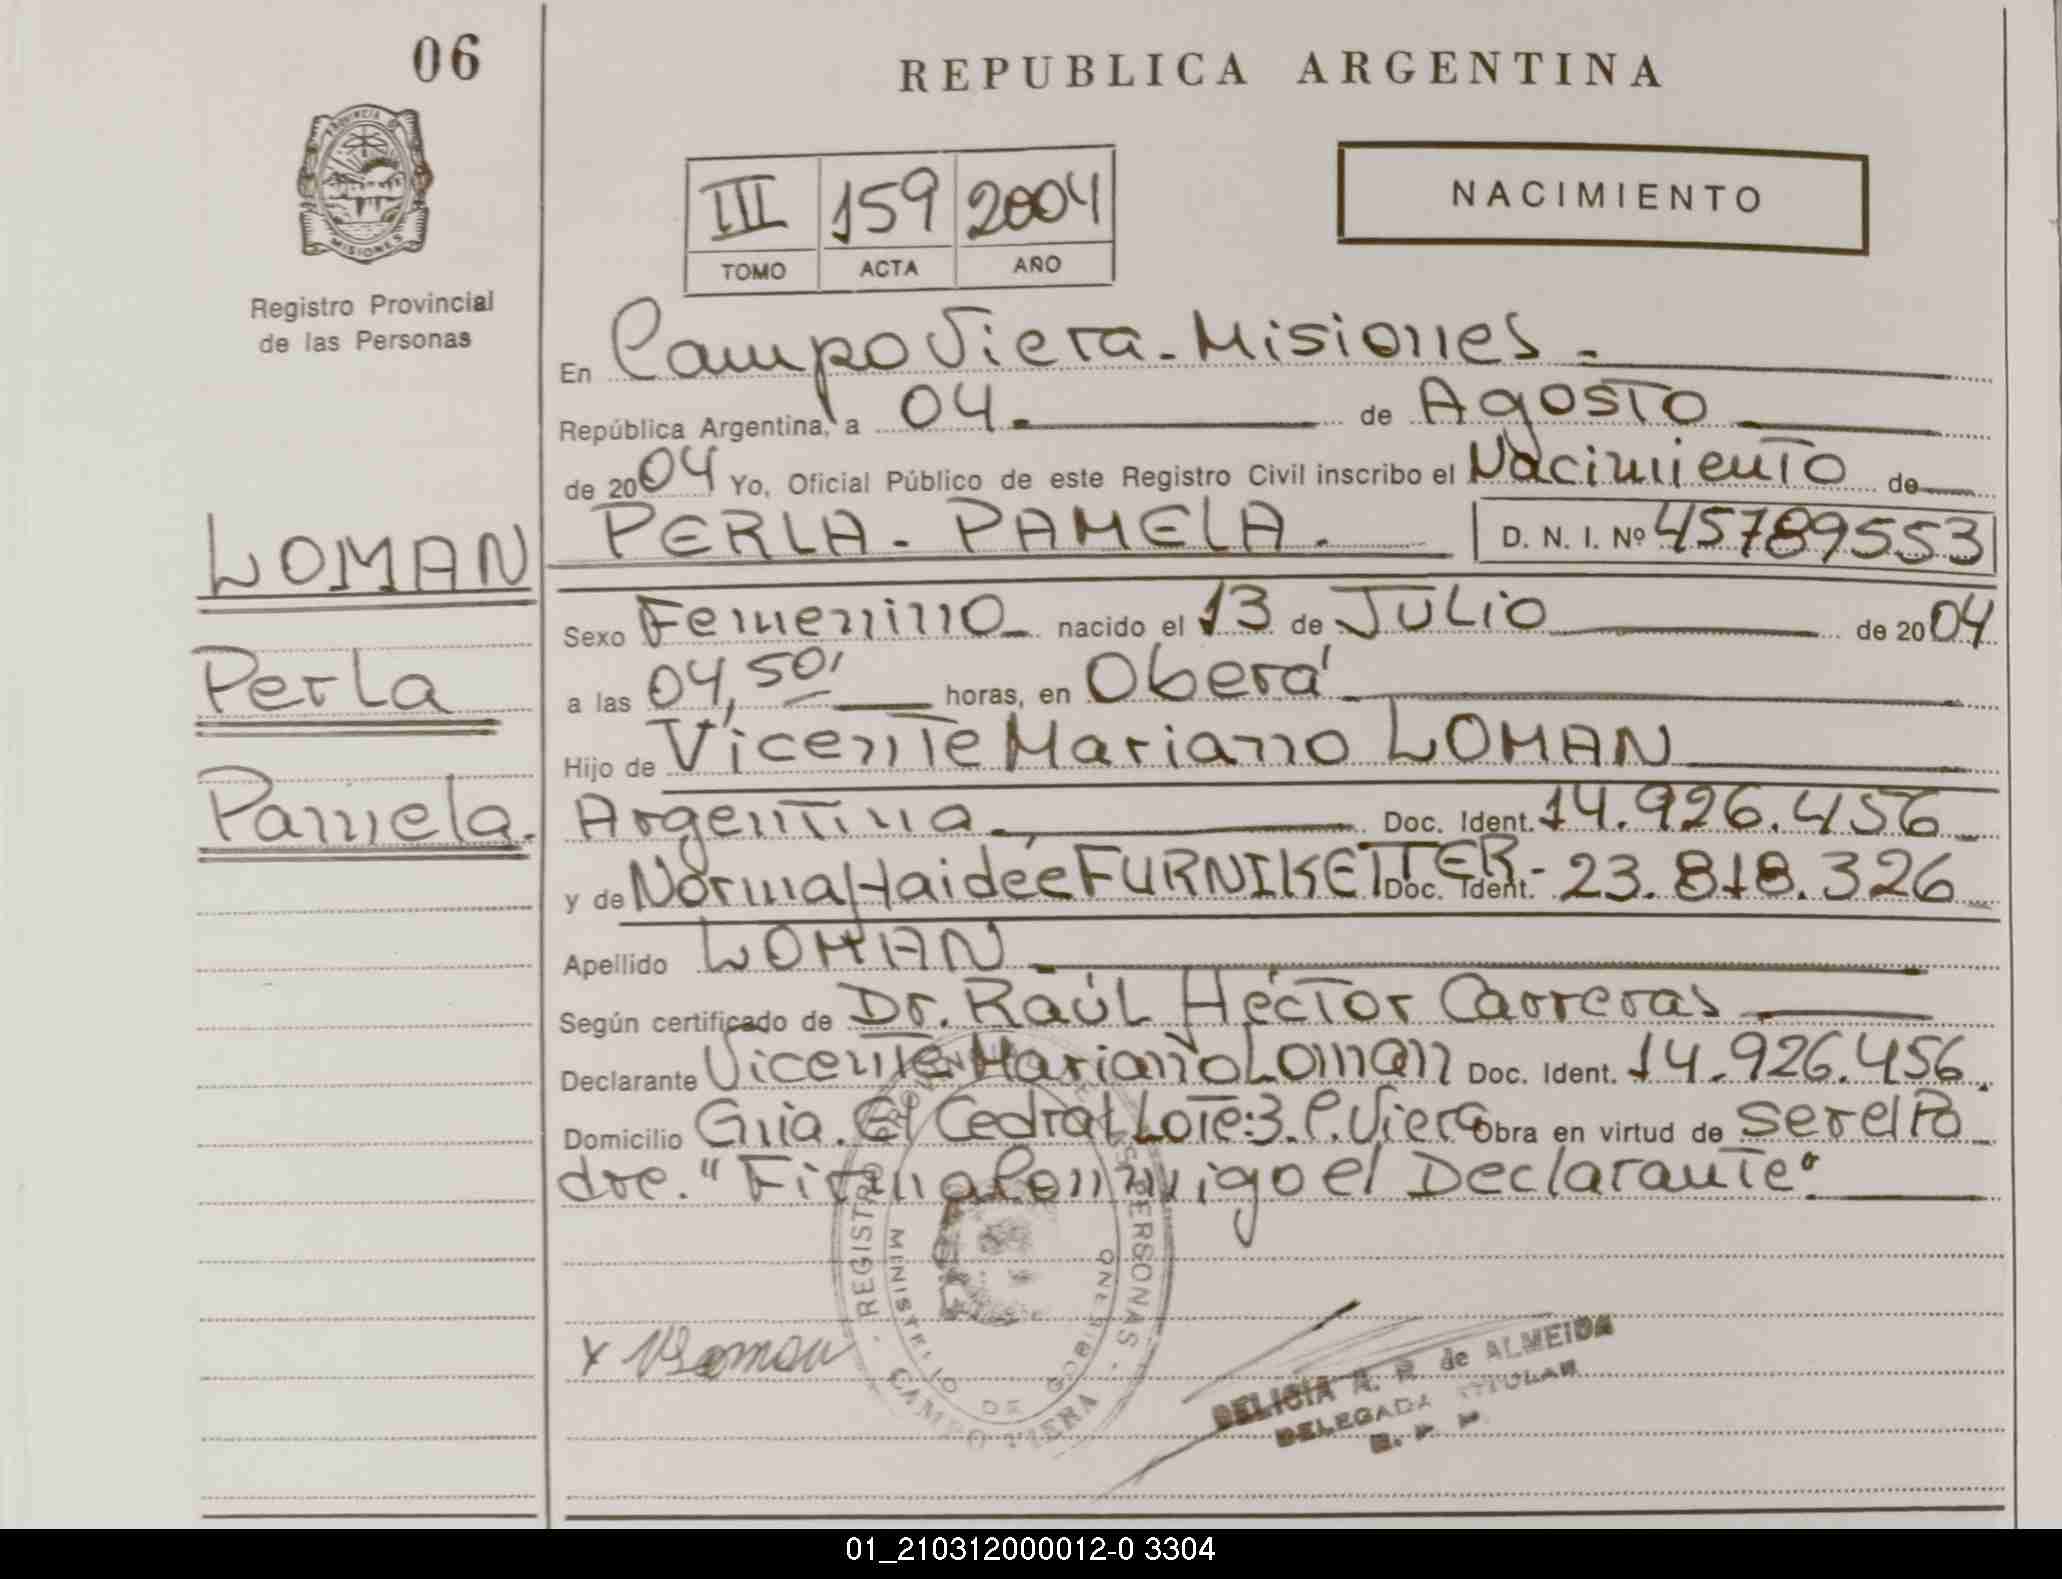 06
REPUBLICA ARGENTINA
PROVINCIA DE
MISIONES
Registro Provincial
de las Personas
III 159 2004
TOMO ACTA AÑO
NACIMIENTO
En Campo Viera - Misiones -
República Argentina, a 04. de Agosto
de 2004 Yo, Oficial Público de este Registro Civil inscribo el Nacimiento de
PERLA - PAMELA. D. N. I. Nº 45789553
LOMAN
Perla
Pamela.
Sexo Femenino nacido el 13 de Julio de 2004
a las 04,50' horas, en Oberá
Hijo de Vicente Mariano LOMAN
Argentina Doc. Ident. 14.926.456
y de Norma Haidée FURNIKETTER - Doc. Ident. 23.818.326
Apellido LOMAN
Según certificado de Dr. Raúl Héctor Carreras
Declarante Vicente Mariano Loman Doc. Ident. 14.926.456.
Domicilio El Cedral Lote: 3. C. Viera Obra en virtud de ser el Pa
dre. "Firma Conmigo el Declarante"
REGISTRO PROVINCIAL DE LAS PERSONAS
MINISTERIO DE GOBIERNO
CAMPO VIERA
x VLoman
DELICIA A. R. de ALMEIDA
DELEGADA TITULAR
01_210312000012-0 3304